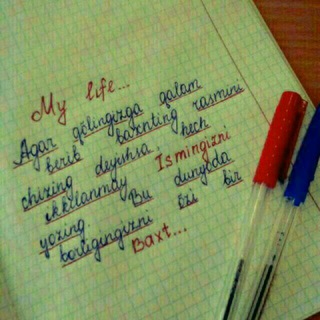 My life...
Agar qölingizga qalam
berib baxnting rasmini
chizing deyishsa, hech
ikkilanmay Ismingizni
yozing Bu dunyoda
borligingizni özi bir
Baxt...